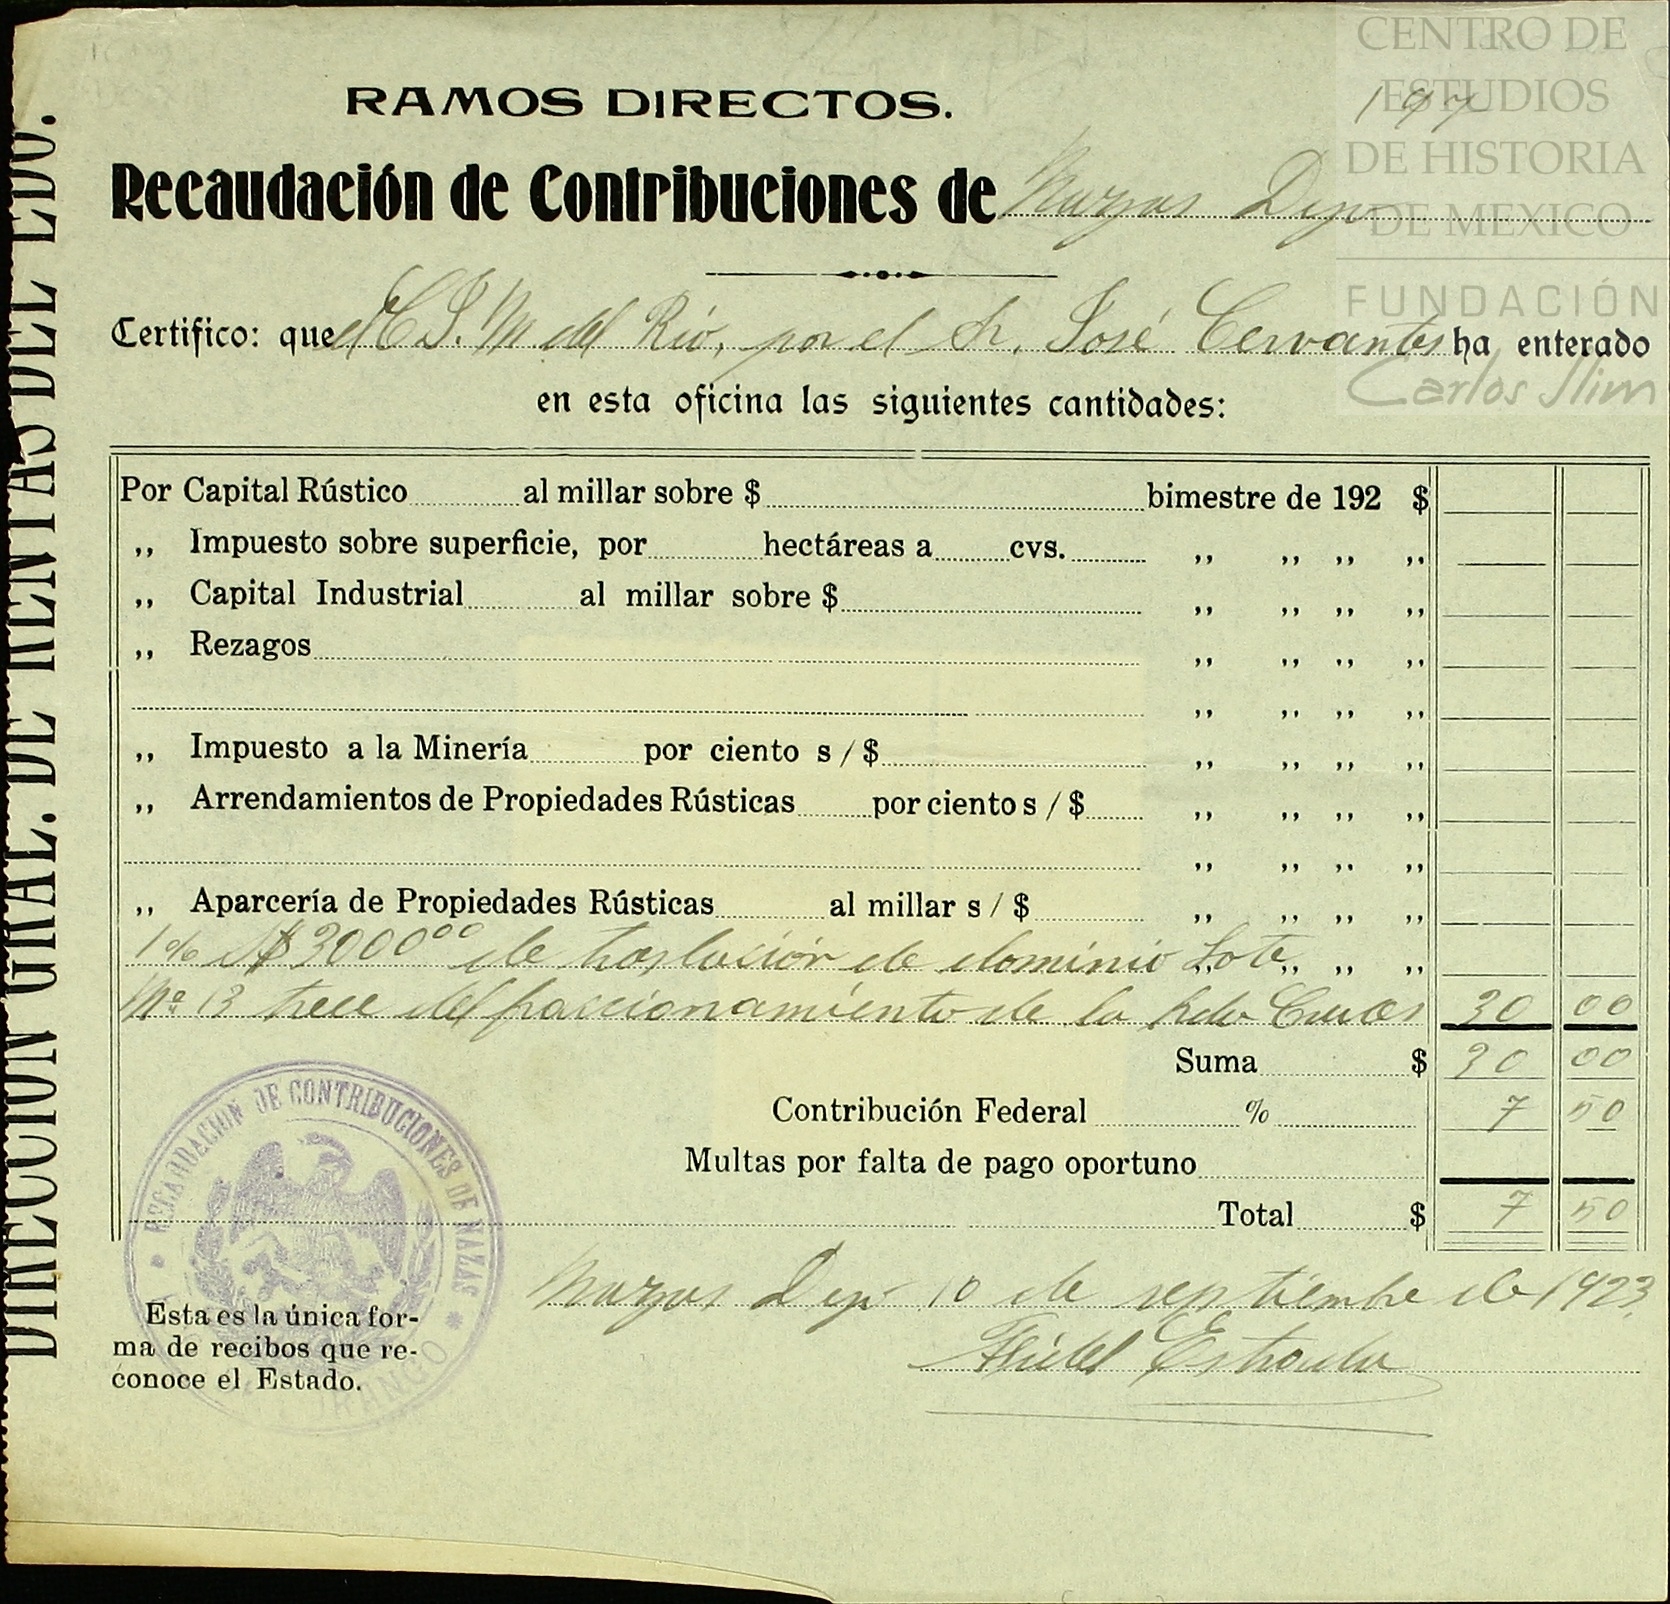 CENTRO DE
ESTUDIOS
DE HISTORIA
DE MEXICO
FUNDACIÓN
Carlos Slim
197
RAMOS DIRECTOS.
Recaudación de Contribuciones de Nazas Dgo
Certifico: que el C J. M del Río, por el Sr. José Cervantes ha enterado
en esta oficina las siguientes cantidades:
Por Capital Rústico al millar sobre $ bimestre de 192 $
,, Impuesto sobre superficie, por hectáreas a cvs. ,, ,, ,, ,,
,, Capital Industrial al millar sobre $ ,, ,, ,, ,,
,, Rezagos ,, ,, ,, ,,
,, ,, ,, ,,
,, Impuesto a la Minería por ciento s / $ ,, ,, ,, ,,
,, Arrendamientos de Propiedades Rústicas por ciento s / $ ,, ,, ,, ,,
,, ,, ,, ,,
,, Aparcería de Propiedades Rústicas al millar s / $ ,, ,, ,, ,,
1% s/$3000°° de traslación de dominio Lote ,, ,, ,,
Nº 13 trece del fraccionamiento de la Hda Cruces 30 00
Suma $ 30 00
Contribución Federal % 7 50
Multas por falta de pago oportuno
Total $ 7 50
Nazas Dgo 10 de septiembre de 1923.
Fidel Estrada
Esta es la única for-
ma de recibos que re-
conoce el Estado.
RECAUDACION DE CONTRIBUCIONES DE NAZAS
DURANGO
DIRECCION GRAL. DE RENTAS DEL EDO.